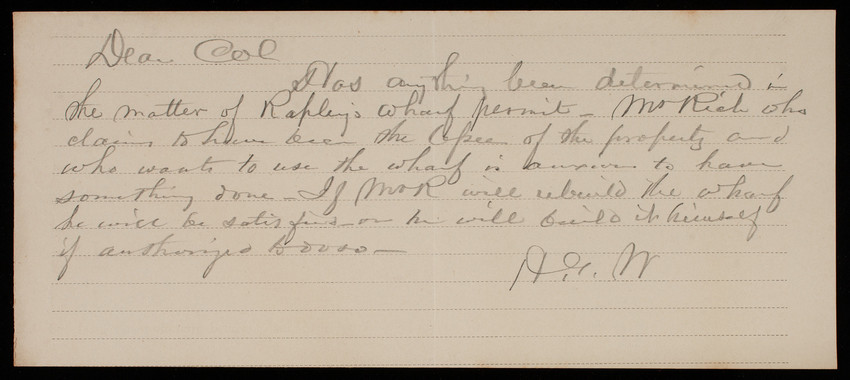 Dear Col
Has anything been determined in
the matter of Rapley's wharf permit - Mr Rich who
claims to have been the lessee of the property and
who wants to use the wharf is anxious to have
something done - If Mr R will rebuild the wharf
he will be satisfied - or he will build it himself
if authorized to do so -
W